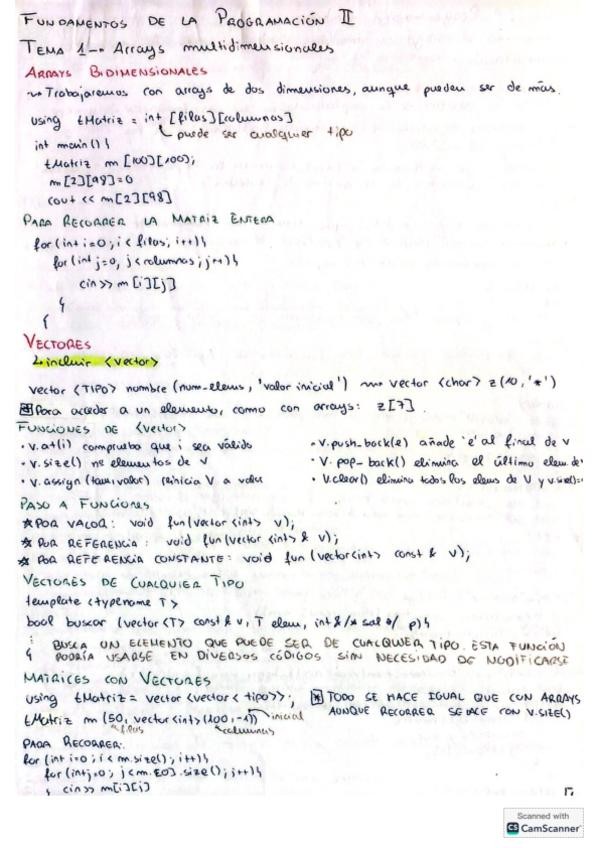 FUNDAMENTOS DE LA PROGRAMACIÓN II
TEMA 1 - Arrays multidimensionales
ARRAYS BIDIMENSIONALES
Trabajaremos con arrays de dos dimensiones, aunque pueden ser de más.
using tMatriz = int [filas][columnas]
puede ser cualquier tipo
int main(){
tMatriz m [100][100];
m[2][98]=0
cout << m[2][98]
PARA RECORRER LA MATRIZ ENTERA
for(int i=0; i< filas; i++){
for(int j=0, j<columnas; j++){
cin>> m[i][j]
}
}
VECTORES
incluir <vector>
vector <TIPO> nombre (num_elems, 'valor inicial') vector <char> z(10, '*')
* Para acceder a un elemento, como con arrays: z[7].
FUNCIONES DE <vector>
• v.at(i) comprueba que i sea válido
• v.size() nº elementos de v
• v.assign(tam, valor) reinicia v a valor
• v.push_back(e) añade 'e' al final de v
• v.pop_back() elimina el último elem. de
• v.clear() elimina todos los elems de v y v.size()=
PASO A FUNCIONES
* POR VALOR: void fun(vector <int> v);
* POR REFERENCIA: void fun(vector <int> & v);
* POR REFERENCIA CONSTANTE: void fun (vector<int> const & v);
VECTORES DE CUALQUIER TIPO
template <typename T>
bool buscar (vector<T> const & v, T elem, int & /* sal */ p){
⋮ BUSCA UN ELEMENTO QUE PUEDE SER DE CUALQUIER TIPO. ESTA FUNCIÓN
} PODRÍA USARSE EN DIVERSOS CÓDIGOS SIN NECESIDAD DE MODIFICARSE
MATRICES CON VECTORES
using tMatriz = vector <vector <tipo>>;
tMatriz m (50, vector<int>(100, -1)) inicial
filas columnas
* TODO SE HACE IGUAL QUE CON ARRAYS
AUNQUE RECORRER SE HACE CON V.SIZE()
PARA RECORRER:
for (int i=0; i< m.size(); i++){
for (int j=0; j< m[0].size(); j++){
{ cin>> m[i][j]
Scanned with
CS CamScanner